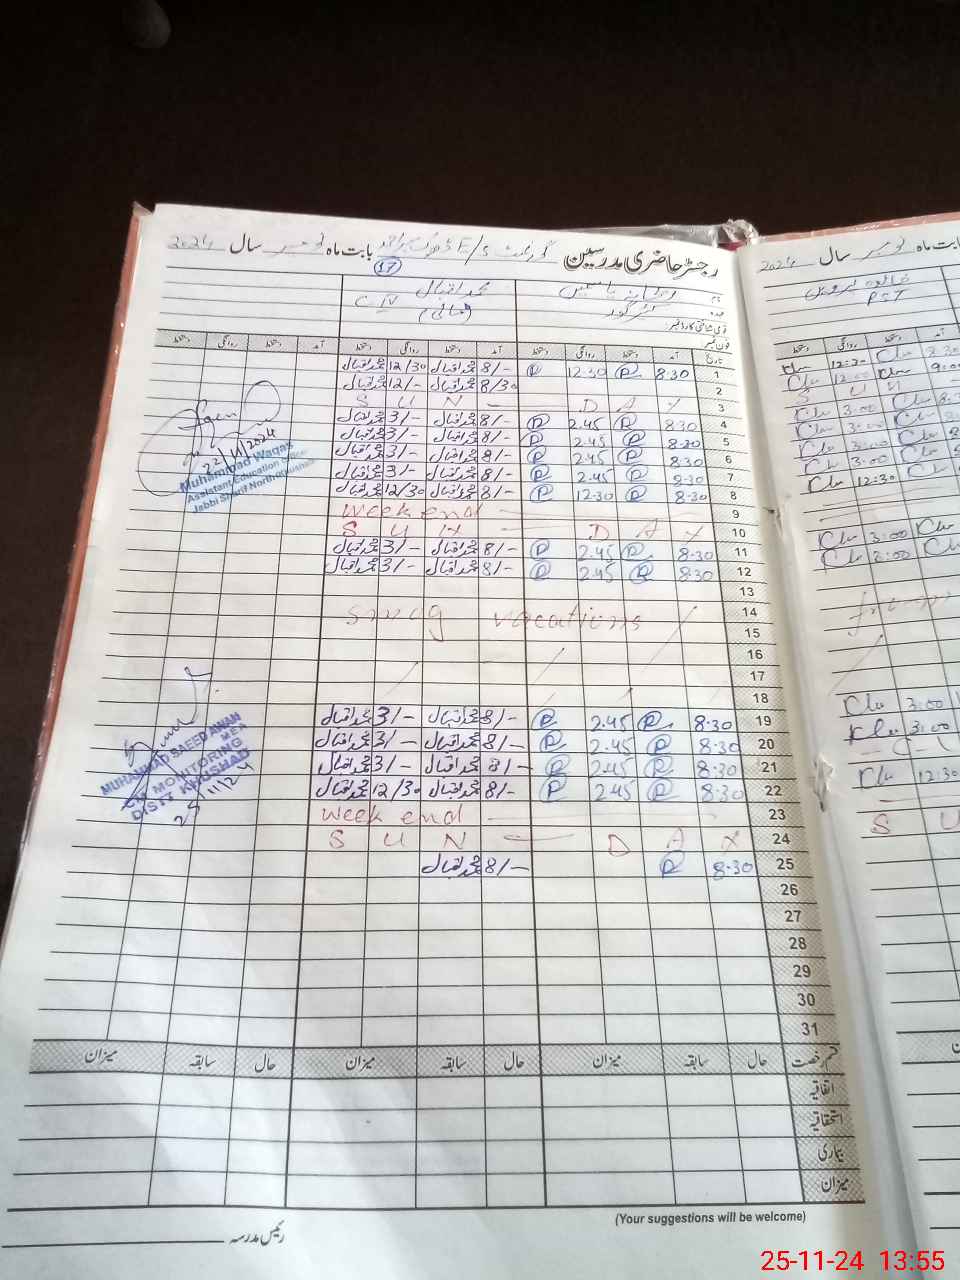 رجسٹر حاضری مدرسین گورنمنٹ E/S ڈھوک بابت ماہ نومبر سال 2024
17
نام محمد اقبال
عہدہ
قومی شناختی کارڈ نمبر:
فون نمبر
تاریخ آمد دستخط روانگی دستخط آمد دستخط روانگی دستخط آمد دستخط روانگی دستخط
1 8.30 P 12.30 P 8/- محمد اقبال 12/30 محمد اقبال
2 8/30 محمد اقبال 12/- محمد اقبال
3 S U N — D A Y
4 8.30 P 2.45 P 8/- محمد اقبال 3/- محمد اقبال
5 8.30 P 2.45 P 8/- محمد اقبال 3/- محمد اقبال
6 8.30 P 2.45 P 8/- محمد اقبال 3/- محمد اقبال
7 8.30 P 2.45 P 8/- محمد اقبال 3/- محمد اقبال
8 8.30 P 12.30 P 8/- محمد اقبال 12/30 محمد اقبال
9 week end —
10 S U N — D A Y
11 8.30 P 2.45 P 8/- محمد اقبال 3/- محمد اقبال
12 8.30 P 2.45 P 8/- محمد اقبال 3/- محمد اقبال
13
14 smog vacations
15
16
17
18
19 8.30 P 2.45 P 8/- محمد اقبال 3/- محمد اقبال
20 8.30 P 2.45 P 8/- محمد اقبال 3/- محمد اقبال
21 8.30 P 2.45 P 8/- محمد اقبال 3/- محمد اقبال
22 8.30 P 2.45 P 8/- محمد اقبال 12/30 محمد اقبال
23 week end —
24 S U N — D A Y
25 8.30 P 8/- محمد اقبال
26
27
28
29
30
31
قسم رخصت حال سابقہ میزان حال سابقہ میزان حال سابقہ میزان
اتفاقیہ
استحقاقیہ
بیماری
میزان
(Your suggestions will be welcome)
رئیس مدرسہ
22/11/2024
Muhammad Waqas
Assistant Education Officer
Jabbi Sharif North (Khushab)
MUHAMMAD SAEED AWAN
MEA
CM MONITORING
DISTT KHUSHAB
25/11/24
بابت ماہ نومبر سال 2024
PST
دستخط روانگی دستخط آمد
12:30 8:30
12:00 9:00
S U N
3:00
3:00
3:00
12:30
3:00
3:00
3:00
3:00
12:30
S U
25-11-24 13:55